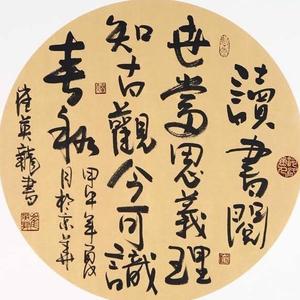 讀書閱
世當思義理
知古觀今可識
春秋
甲午年夏
月於京華
崔英龍書